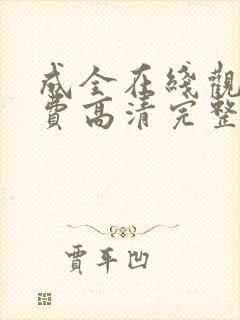 成全在綫觀
費高清完整
賈平凹